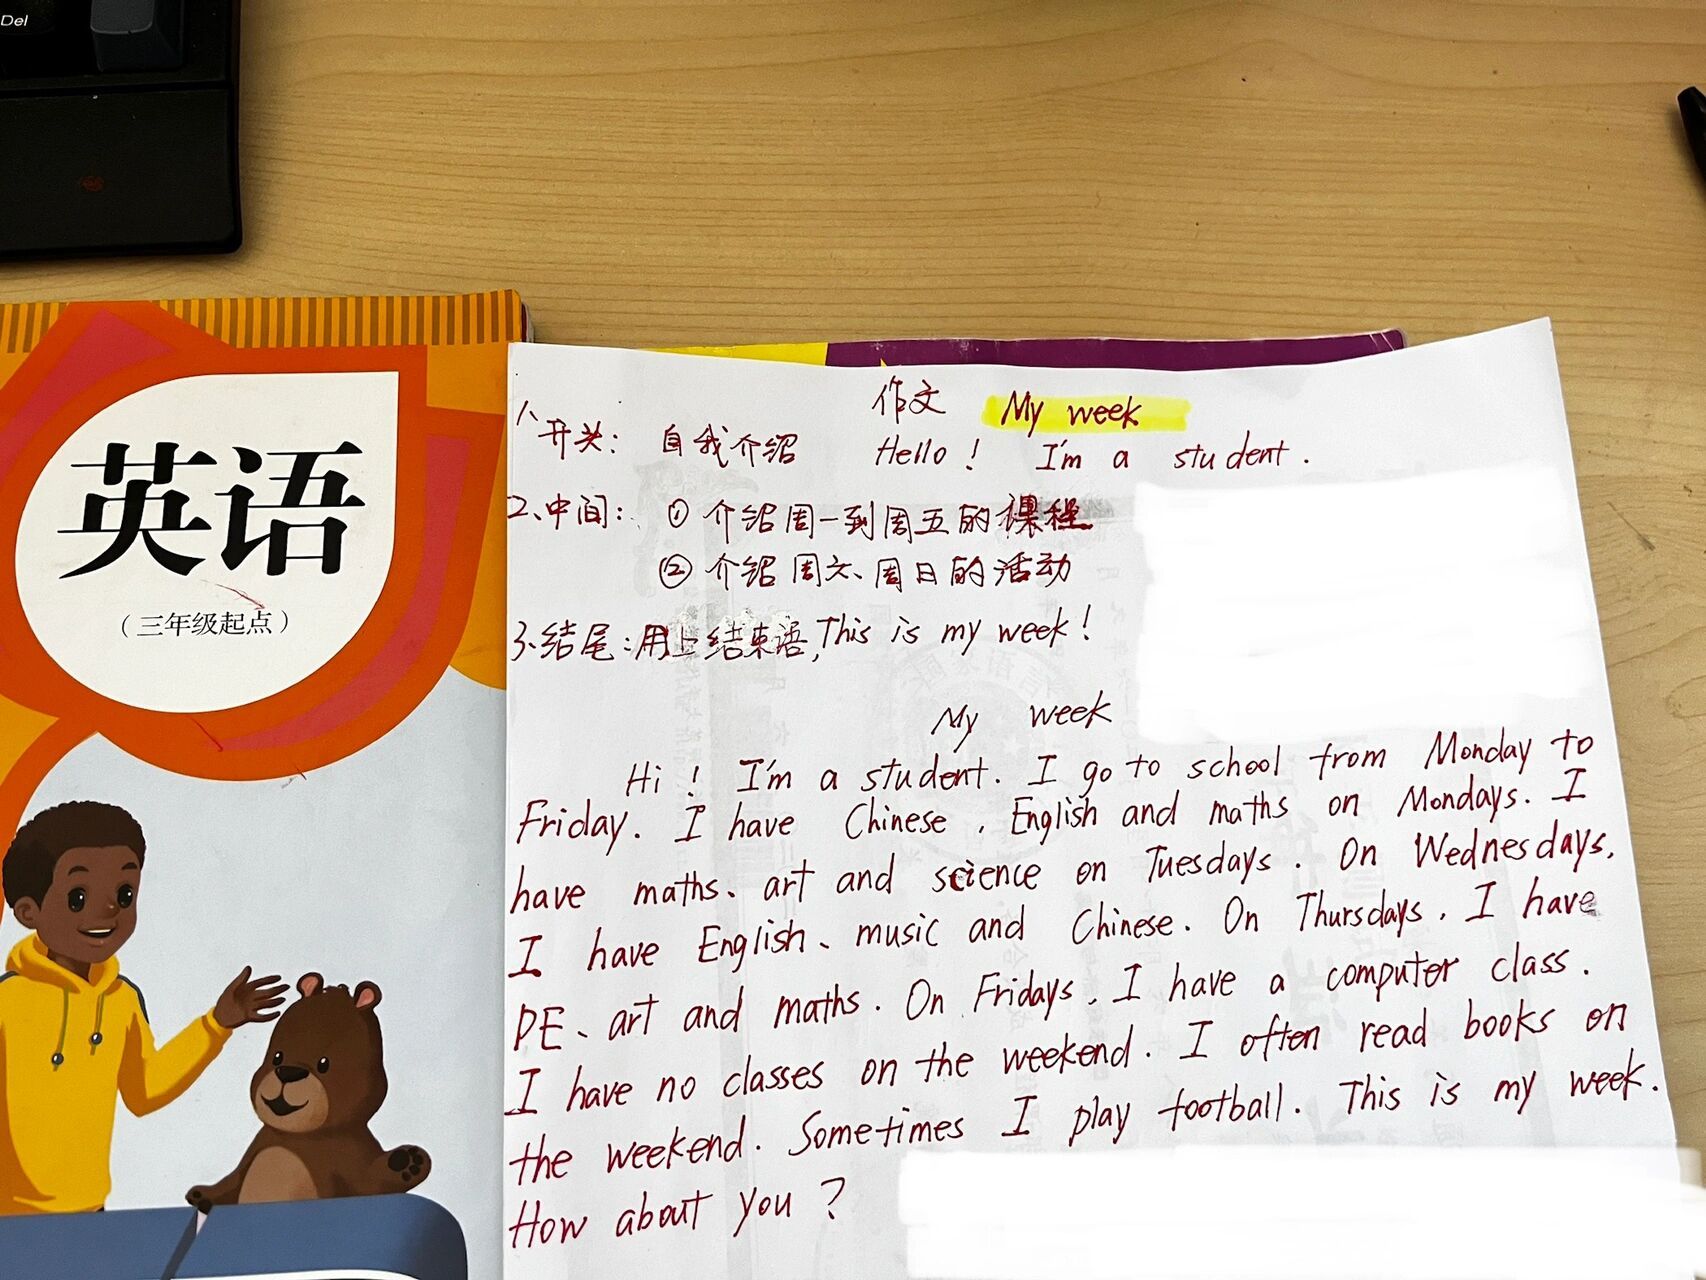 Del
英语
（三年级起点）
作文 My week
1、开头： 自我介绍 Hello！ I'm a student.
2、中间： ① 介绍周一到周五的课程
② 介绍周六、周日的活动
3、结尾：用上结束语，This is my week！
My week
Hi！ I'm a student. I go to school from Monday to
Friday. I have Chinese , English and maths on Mondays. I
have maths、 art and science on Tuesdays . On Wednesdays,
I have English、 music and Chinese. On Thursdays , I have
PE、 art and maths. On Fridays , I have a computer class .
I have no classes on the weekend. I often read books on
the weekend. Sometimes I play football. This is my week.
How about you ?